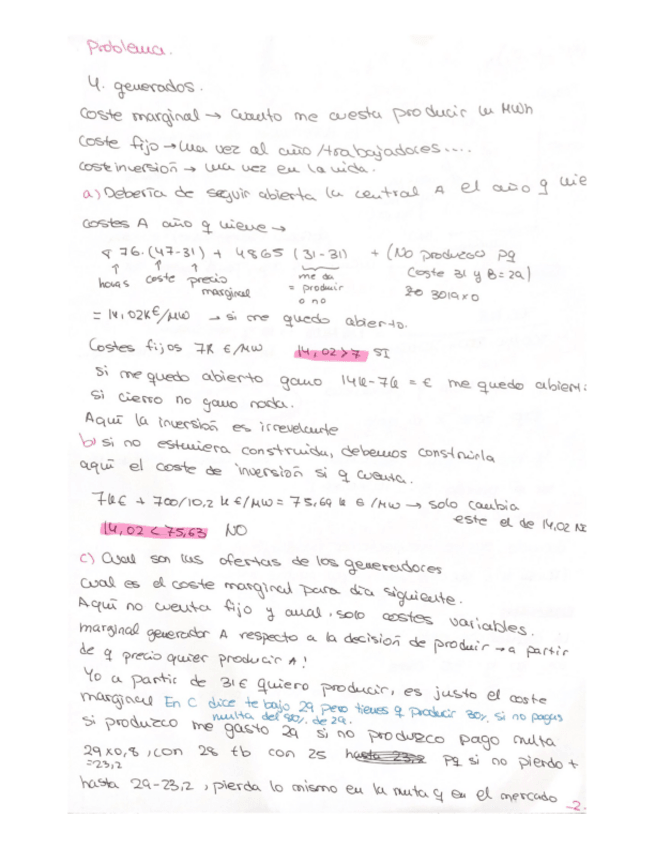 Problema.
4. generados.
coste marginal → cuanto me cuesta producir un MWh
coste fijo → una vez al año /trabajadores....
coste inversión → una vez en la vida.
a) Debería de seguir abierta la central A el año q vie
costes A año q viene →
876.(47-31) + 4865 (31-31) + (No produzco pq
↑ ↑ ↑ me da coste 31 y B=29)
horas coste precio = producir 3019x0
marginal o no
= 14,02K€/MW → si me quedo abierto.
Costes fijos 7K €/MW 14,02>7 SI
si me quedo abierto gano 14k-7k = € me quedo abiert.
si cierro no gano nada.
Aquí la inversión es irrevelante
b) si no estuviera construida, debemos construirla
aquí el coste de inversión si q cuenta.
7k€ + 700/10,2 k€/MW = 75,69 k€/MW → solo cambia
este el de 14,02 NO
14,02 < 75,63 NO
c) Cual son las ofertas de los generadores
cual es el coste marginal para dia siguiente.
Aquí no cuenta fijo y anual, solo costes variables.
marginal generador A respecto a la decisión de produir → a partir
de q precio quier producir A!
Yo a partir de 31€ quiero producir, es justo el coste
marginal En C dice te bajo 29 pero tienes q producir 30%, si no pagas
multa del 80% de 29.
si produzco me gasto 29 si no produzco pago multa
29x0,8, con 28 tb con 25 hasta 23,2 pq si no pierdo +
=23,2
hasta 29-23,2, pierda lo mismo en la muta y en el mercado
-2.